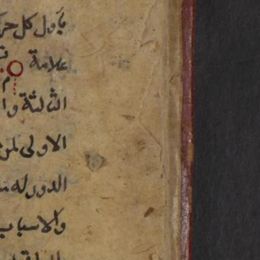 باول كل حر
علامة
الثالثة وا
الاولى لمن
الدور له
والاسباب